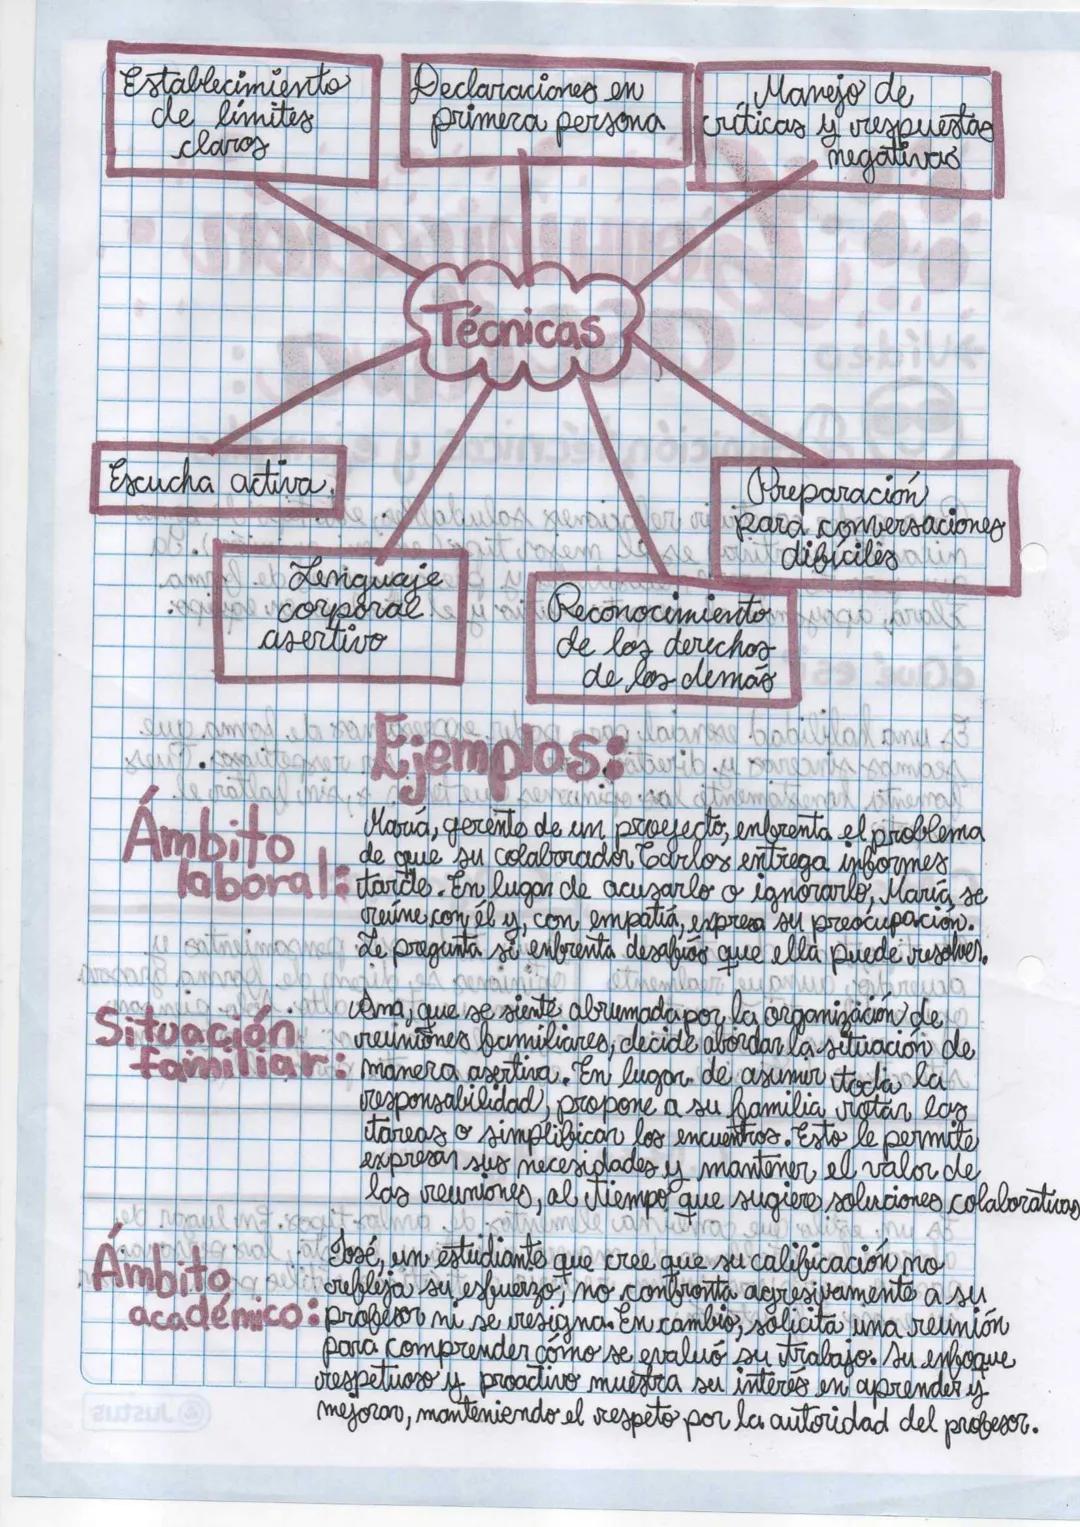 Establecimiento
de límites
claros
Declaraciones en
primera persona
Manejo de
críticas y respuestas
negativas
Técnicas
Escucha activa.
Lenguaje
corporal
asertivo
Reconocimiento
de los derechos
de los demás
Preparación
para conversaciones
difíciles
Ejemplos:
Ámbito
laboral:
María, gerente de un proyecto, enfrenta el problema
de que su colaborador Carlos entrega informes
tarde. En lugar de acusarlo o ignorarlo, María se
reúne con él y, con empatía, expresa su preocupación.
Le pregunta si enfrenta desafíos que ella puede resolver.
Situación
familiar:
Ana, que se siente abrumada por la organización de
reuniones familiares, decide abordar la situación de
manera asertiva. En lugar de asumir toda la
responsabilidad, propone a su familia rotar las
tareas o simplificar los encuentros. Esto le permite
expresar sus necesidades y mantener el valor de
las reuniones, al tiempo que sugiere soluciones colaborativas
Ámbito
académico:
José, un estudiante que cree que su calificación no
refleja su esfuerzo, no confronta agresivamente a su
profesor ni se resigna. En cambio, solicita una reunión
para comprender cómo se evaluó su trabajo. Su enfoque
respetuoso y proactivo muestra su interés en aprender y
mejorar, manteniendo el respeto por la autoridad del profesor.